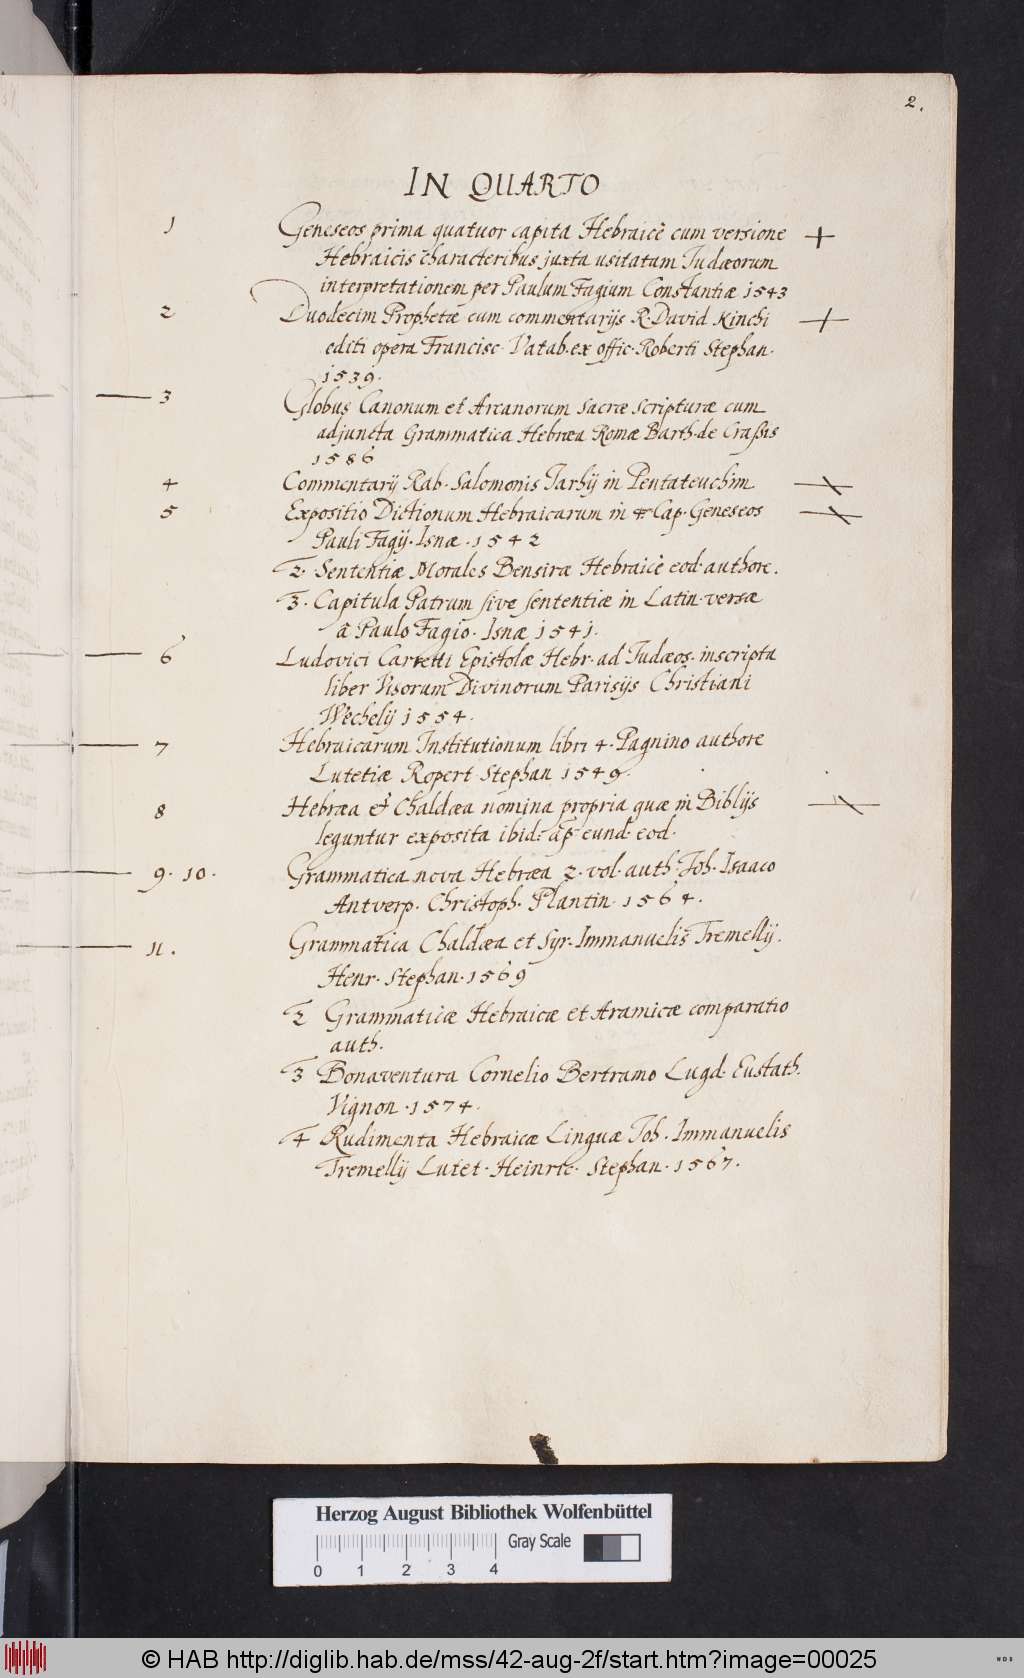 2.
IN QUARTO
1 Geneseos prima quatuor capita Hebraicè cum versione
Hebraicis characteribus juxta usitatam Judæorum
interpretationem per Paulum Fagium Constantiæ 1543
2 Duodecim Prophetæ cum commentarijs R. David Kinchi
editi opera Francisc. Vatab. ex offic. Roberti Stephan.
1539.
3 Globus Canonum et Arcanorum sacræ scripturæ cum
adjuncta Grammatica Hebræa Romæ Barth. de Crassis
1586
4 Commentarij Rab. Salomonis Jarhij in Pentateuchum
5 Expositio Dictionum Hebraicarum in 4 Cap. Geneseos
Pauli Fagij. Isnæ. 1542
2. Sententiæ Morales Bensiræ Hebraicè eod. authore.
3. Capitula Patrum sive sententiæ in Latin. versæ
â Paulo Fagio. Isnæ 1541.
6 Ludovici Carretti Epistolæ Hebr. ad Judæos. inscripta
liber Visorum Divinorum Parisijs Christiani
Wechelij 1554.
7 Hebraicarum Institutionum libri 4. Pagnino authore
Lutetiæ Ropert Stephan 1549.
8 Hebræa et Chaldæa nomina propria quæ in Biblijs
leguntur exposita ibid: ap eund. eod.
9. 10. Grammatica nova Hebræa 2. vol. auth. Joh. Isaaco
Antverp. Christoph. Plantin. 1564.
11. Grammatica Chaldæa et Syr. Immanuelis Tremellij.
Henr. Stephan. 1569
2 Grammaticæ Hebraicæ et Aramicæ comparatio
auth.
3 Bonaventura Cornelio Bertramo Lugd. Eustath.
Vignon. 1574.
4 Rudimenta Hebraicæ Linguæ Joh. Immanuelis
Tremellij Lutet. Heinric. Stephan. 1567.
Herzog August Bibliothek Wolfenbüttel
Gray Scale
0 1 2 3 4
© HAB http://diglib.hab.de/mss/42-aug-2f/start.htm?image=00025